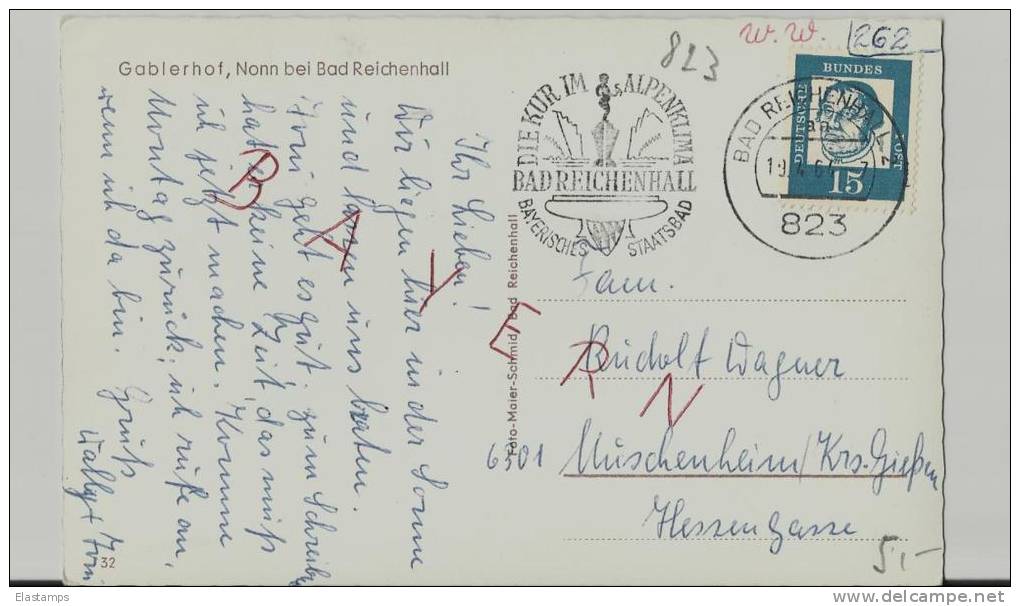 Gablerhof, Nonn bei Bad Reichenhall
Ihr Lieben!
Wir liegen hier in der Sonne
und lassen uns braten.
Irmi geht es gut. Zum Schreiben
hat er keine Zeit, das muß
ich jetzt machen. Komme
Montag zurück; ich rufe an,
wenn ich da bin. Gruß
Wally + Irmi
32
BAYERN
Foto-Maier-Schmid, Bad Reichenhall
823
W. W.
262
DIE KUR IM ALPENKLIMA
BAD REICHENHALL
BAYERISCHES STAATSBAD
BAD REICHENHALL 1
823
DEUTSCHE BUNDESPOST
15
Fam.
Rudolf Wagner
6301 Muschenheim/Krs. Gießen
Hessengasse
5,-
Elastamps
www.delcampe.net